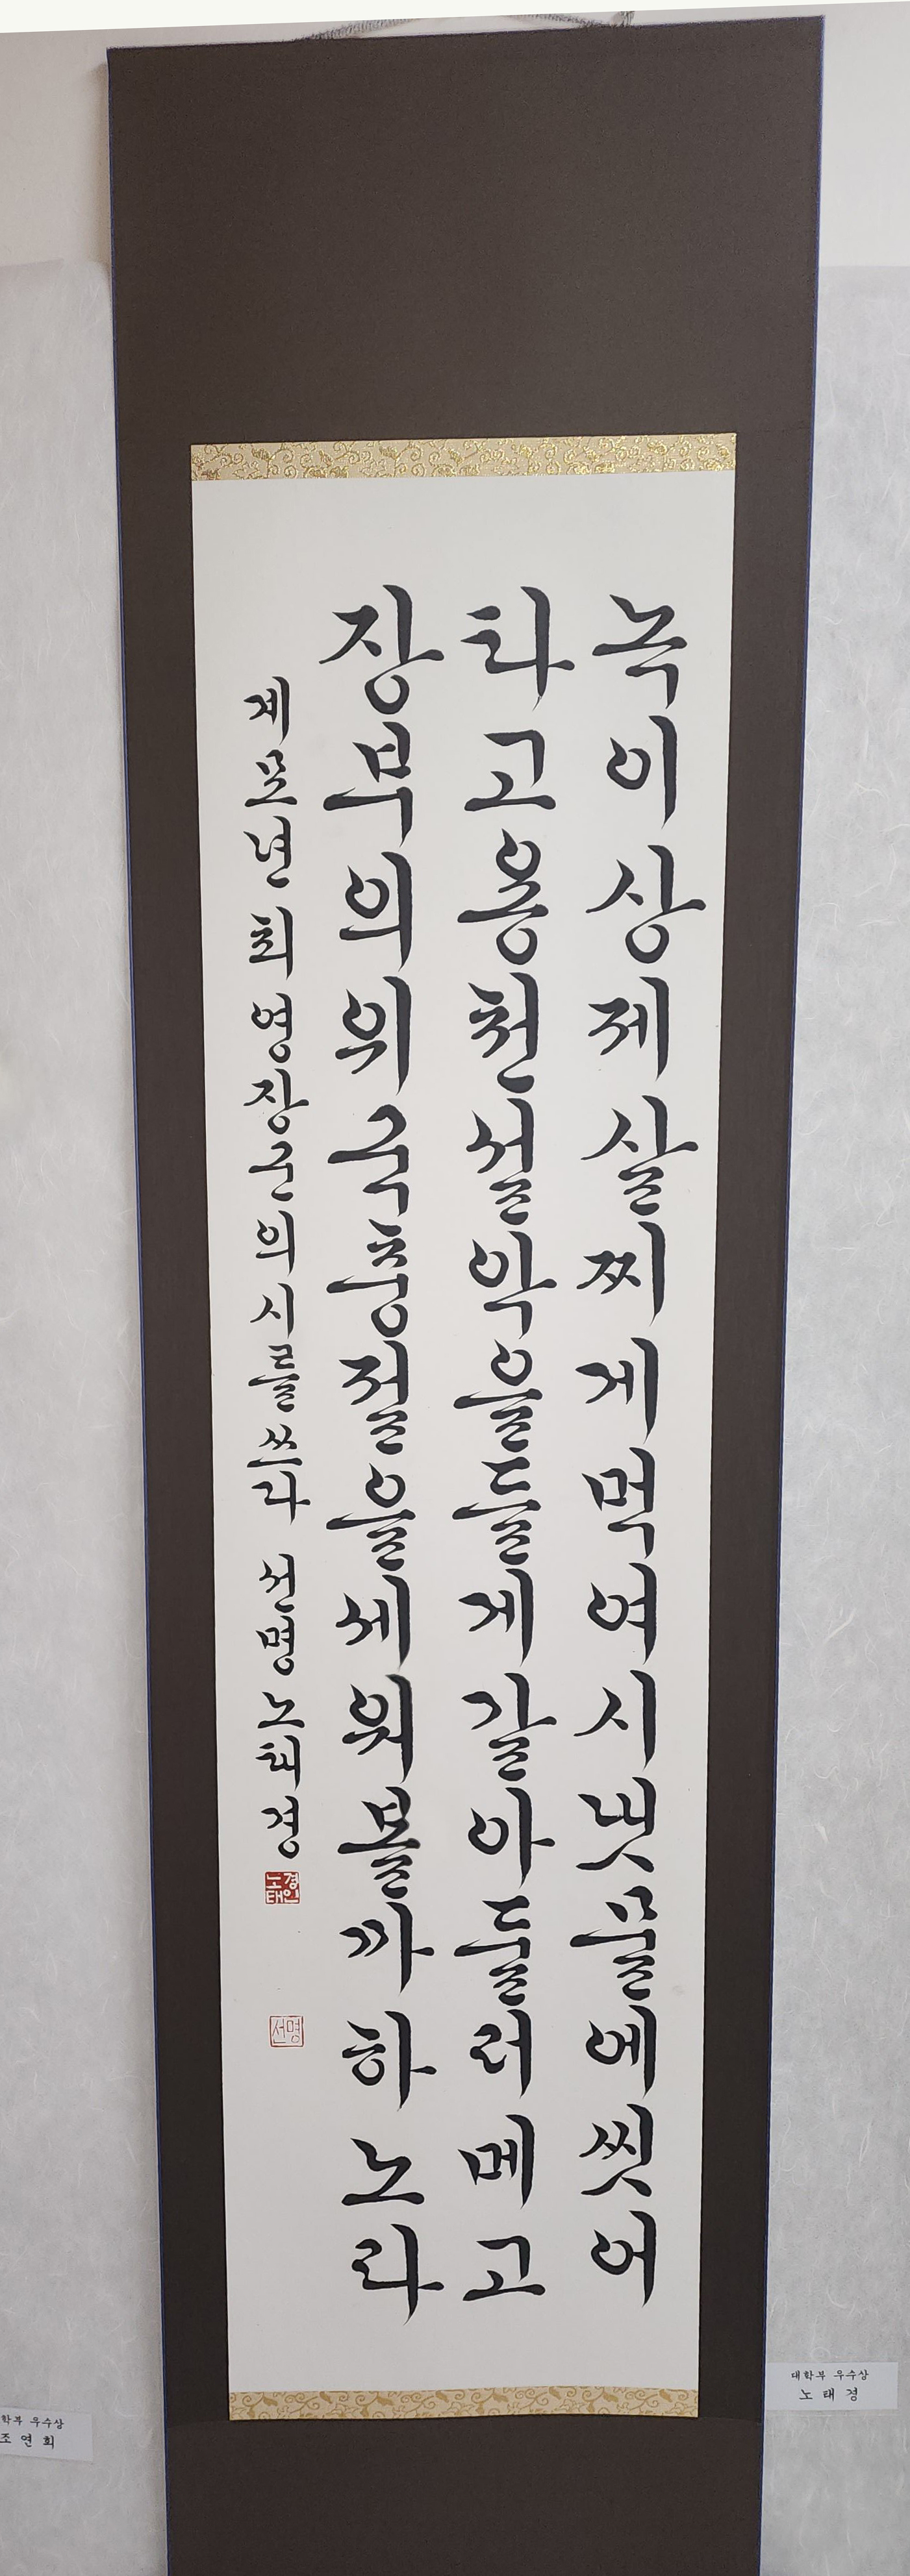 녹이상제살찌게먹여시냇물에씻어
타고용천설악을들게갈아둘러메고
장부의위국충절을세워볼까하노라
계묘년 최영장군의시를쓰다 선명 노태경
노태경인
선명
대학부 우수상
노 태 경
학부 우수상
조 연 희